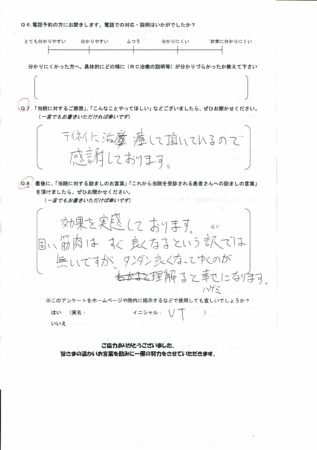 Q6 電話予約の方にお聞きします。電話での対応・説明はいかがでしたか？
とても分かりやすい 分かりやすい ふつう 分かりにくい 非常に分かりにくい
分かりにくかった方へ。具体的にどの様に（料く治療の説明等）が分かりづらかったか教えて下さい
Q7 「当院に対するご感想」、「こんなことやってほしい」などございましたら、ぜひお聞かせください。
（一言でもお書きいただければ幸いです）
テイネイに治療 療して頂いているので
感謝しております。
Q8 最後に、「当院に対する励ましのお言葉」「これから当院を受診される患者さんへの励ましの言葉」
を頂けましたら、ぜひお聞かせください。
（一言でもお書きいただければ幸いです）
効果を実感しております。
固い筋肉は すぐ良くなるという訳では
無いですが、タンダン良くなってゆくのが
理解ると幸せになります。
ハゲミ
※このアンケートをホームページや院内に掲示するなどで使用しても宜しいでしょうか？
はい （実名： イニシャル： VT ）
いいえ
ご協力ありがとうございました。
皆さまの温かいお言葉を励みに一層の努力をさせていただきます。